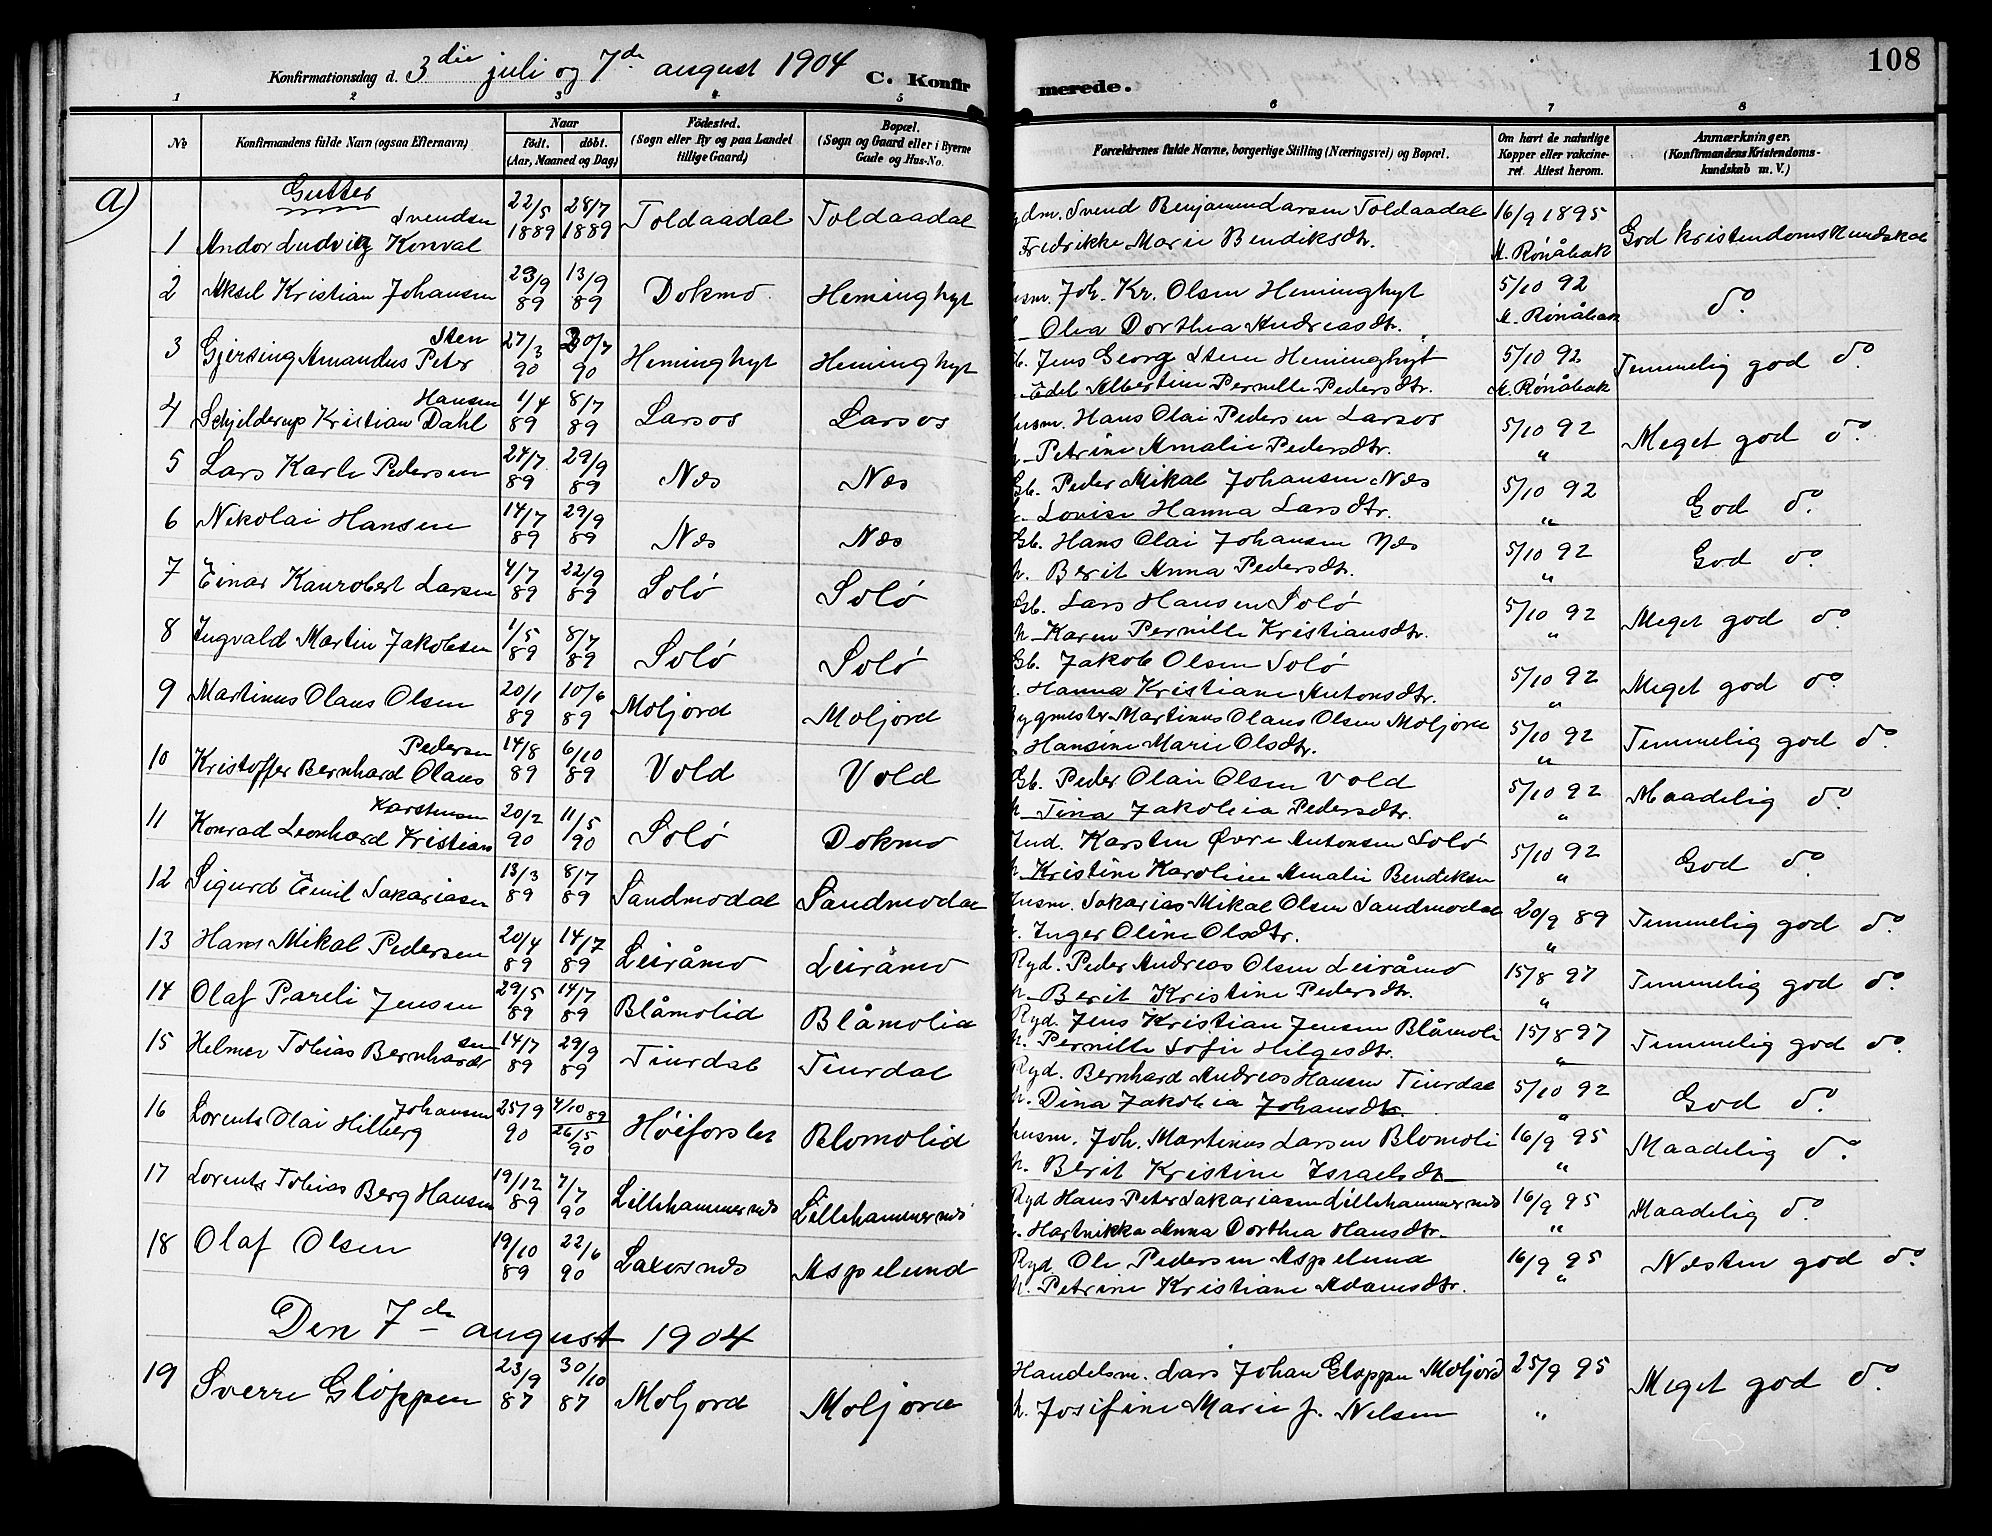 108
Konfirmationsdag d. 3die juli og 7de august 1904
C. Konfirmerede.
1 2 3 4 5 6 7 8
No
Konfirmandens fulde Navn (ogsaa Efternavn)
Naar
født. døbt.
(Aar, Maaned og Dag)
Fødested.
(Sogn eller By og paa Landet tillige Gaard)
Bopæl.
(Sogn og Gaard eller i Byerne Gade og Hus-No.
Forældrenes fulde Navne, borgerlige Stilling (Næringsvei) og Bopæl.
Om havt de naturlige Kopper eller vakcineret. Attest herom.
Anmærkninger.
(Konfirmandens Kristendomskundskab m. V.)
a)
Gutter
1 Andor Ludvig Konval Svendsen 22/5 1889 28/7 1889 Toldaadal Toldaadal Svend Benjamin Larsen Toldaadal 16/9 1895 God kristendomskundskab
Fredrikke Marie Bendiksdtr. M. Rønåbak
2 Aksel Kristian Johansen 23/9 89 13/9 89 Dokmo Heminghyt Joh. Kr. Olsen Heminghyt 5/10 92 do
Olea Dorthea Andreasdtr. M. Rønåbak
3 Gjersing Amandus Peter Sten 27/3 90 20/7 90 Heminghyt Heminghyt Jens Georg Steen Heminghyt 5/10 92 Temmelig god do
Edel Albertine Pernille Pedersdtr. M. Rønåbak
4 Schjelderup Kristian Dahl Hansen 1/4 89 8/7 89 Larsos Larsos Hans Olai Pedersen Larsos 5/10 92 Meget god do
Petrine Amalie Pedersdtr. "
5 Lars Karle Pedersen 24/7 89 29/9 89 Næs Næs Gb. Peder Mikal Johansen Næs 5/10 92 God do
Louise Hanna Larsdtr. "
6 Nikolai Hansen 14/7 89 29/9 89 Næs Næs Gb. Hans Olai Johansen Næs 5/10 92 God do
h. Berit Anna Pedersdtr. "
7 Einar Kanrobert Larsen 4/7 89 22/9 89 Solø Solø Gb. Lars Hansen Solø 5/10 92 Meget god do
h. Karen Pernille Kristiansdtr. "
8 Ingvald Martin Jakobsen 1/5 89 8/7 89 Solø Solø Gb. Jakob Olsen Solø 5/10 92 Meget god do
Hanna Kristiane Antonsdtr. "
9 Martinus Olaus Olsen 20/1 89 10/6 89 Moljord Moljord Bygmestr. Martinus Olaus Olsen Moljord 5/10 92 Temmelig god do
Hansine Marie Olsdtr. "
10 Kristoffer Bernhard Olaus Pedersen 14/8 89 6/10 89 Vold Vold Gb. Peder Olai Olsen Vold 5/10 92 Maadelig do
h. Tina Jakobia Pedersdtr. "
11 Konrad Leonhard Kristian Karstensen 20/2 90 11/5 90 Solø Dokmo Ind. Karsten Øvre Antonsen Solø 5/10 92 God do
h. Kristine Karoline Amalie Bendiksen "
12 Sigurd Emil Sakariasen 13/3 89 8/7 89 Sandmodal Sandmodal Husm. Sakarias Mikal Olsen Sandmodal 20/9 89 Temmelig god do
Inger Oline Olsdtr. "
13 Hans Mikal Pedersen 20/4 89 14/7 89 Leiråmo Leiråmo Ryd. Peder Andreas Olsen Leiråmo 15/8 97 Temmelig god do
h. Berit Kristine Pedersdtr. "
14 Olaf Pareli Jensen 29/5 89 14/7 89 Blåmolid Blåmolid Ryd. Jens Kristian Jensen Blåmoli 15/8 97 Temmelig god do
h. Pernille Sofie Hilgesdtr. "
15 Helmer Tobias Bernhardsen 14/7 89 29/9 89 Tiurdal Tiurdal Ryd. Bernhard Andreas Hansen Tiurdal 5/10 92 God do
h. Dina Jakobia Johansdtr. "
16 Lorents Olai Hilberg Johansen 25/9 90 4/10 89 26/5 90 Høiforslet Blomolid husm. Joh. Martinus Larsen Blomoli 16/9 95 Maadelig do
h. Berit Kristine Israelsdtr. "
17 Lorents Tobias Berg Hansen 19/12 89 7/7 90 Lillehammernes Lillehammernes Ryd Hans Peter Sakariasen Lillehammernes 16/9 95 Maadelig do
Hartnikka Anna Dorthea Hansdtr. "
18 Olaf Olsen 19/10 89 22/6 90 Laxesnes Aspelund Ryd. Ole Pedersen Aspelund 16/9 95 Næsten god do
h. Petrine Kristiane Adamsdtr. "
Den 7de august 1904
19 Sverre Gløppen 23/9 87 30/10 87 Moljord Moljord Handelsm. Lars Johan Gløppen Moljord 25/9 95 Meget god do
h. Josefine Marie f. Nelsen "